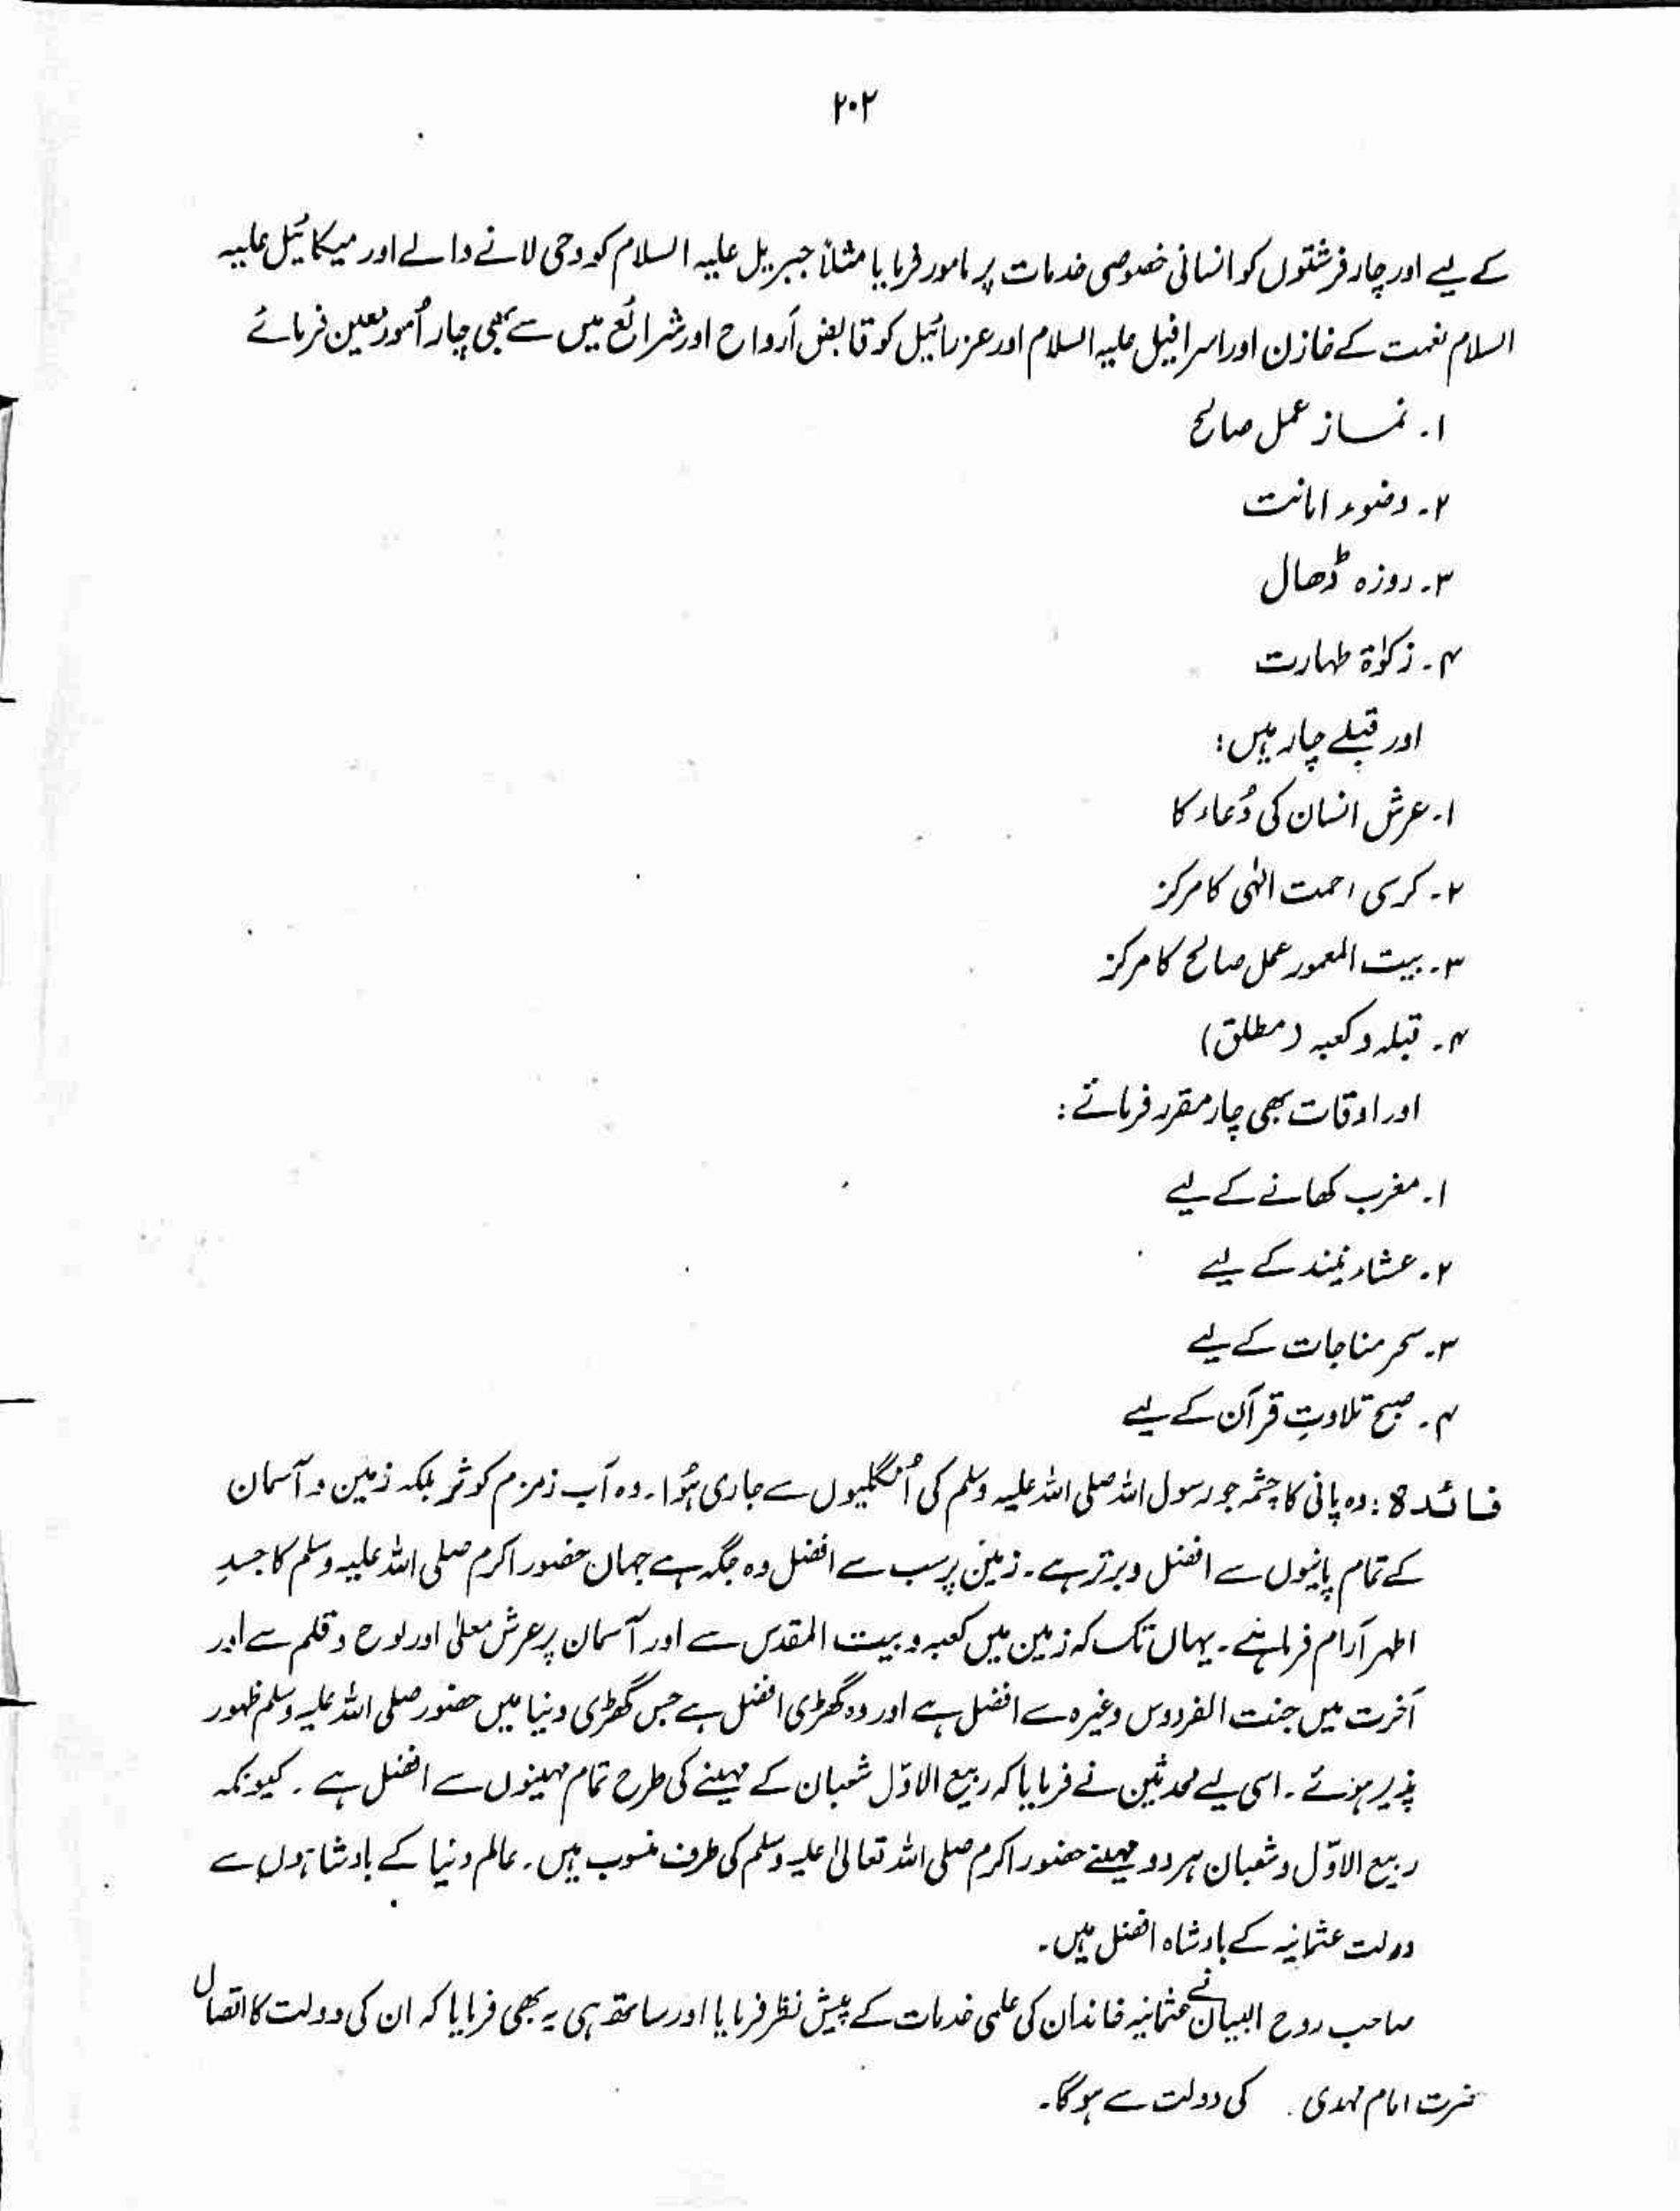 ۲۰۲
کے لیے اور چار فرشتوں کو انسانی خصوصی خدمات پر مامور فرمایا مثلاً جبریل علیہ السلام کو وحی لانے والے اور میکائیل علیہ
السلام نعمت کے خازن اور اسرافیل علیہ السلام اور عزرائیل کو قابض اَرواح اور شرائع میں سے بھی چار اُمور معین فرمائے
۱۔ نماز عمل صالح
۲۔ وضوء امانت
۳۔ روزہ ڈھال
۴۔ زکوٰۃ طہارت
اور قبلے چار ہیں:
۱۔ عرش انسان کی دُعاء کا
۲۔ کرسی رحمت الٰہی کا مرکز
۳۔ بیت المعمور عمل صالح کا مرکز
۴۔ قبلہ و کعبہ (مطلق)
اور اوقات بھی چار مقرر فرمائے:
۱۔ مغرب کھانے کے لیے
۲۔ عشاء نیند کے لیے
۳۔ سحر مناجات کے لیے
۴۔ صبح تلاوتِ قرآن کے لیے
فائدہ: وہ پانی کا چشمہ جو رسول اللہ صلی اللہ علیہ وسلم کی اُنگلیوں سے جاری ہُوا۔ وہ آب زمزم کوثر بلکہ زمین و آسمان
کے تمام پانیوں سے افضل و برتر ہے۔ زمین پر سب سے افضل وہ جگہ ہے جہاں حضور اکرم صلی اللہ علیہ وسلم کا جسدِ
اطہر آرام فرما ہے۔ یہاں تک کہ زمین میں کعبہ و بیت المقدس سے اور آسمان پر عرش معلیٰ اور لوح و قلم سے اور
آخرت میں جنت الفردوس وغیرہ سے افضل ہے اور وہ گھڑی افضل ہے جس گھڑی دنیا میں حضور صلی اللہ علیہ وسلم ظہور
پذیر ہوئے۔ اسی لیے محدثین نے فرمایا کہ ربیع الاوّل شعبان کے مہینے کی طرح تمام مہینوں سے افضل ہے۔ کیونکہ
ربیع الاوّل و شعبان ہر دو مہینے حضور اکرم صلی اللہ تعالیٰ علیہ وسلم کی طرف منسوب ہیں۔ عالم دنیا کے بادشاہوں سے
دولت عثمانیہ کے بادشاہ افضل ہیں۔
صاحب روح البیان نے عثمانیہ خاندان کی علمی خدمات کے پیش نظر فرمایا اور ساتھ ہی یہ بھی فرمایا کہ ان کی دولت کا اتصال
حضرت امام مہدی کی دولت سے ہوگا۔